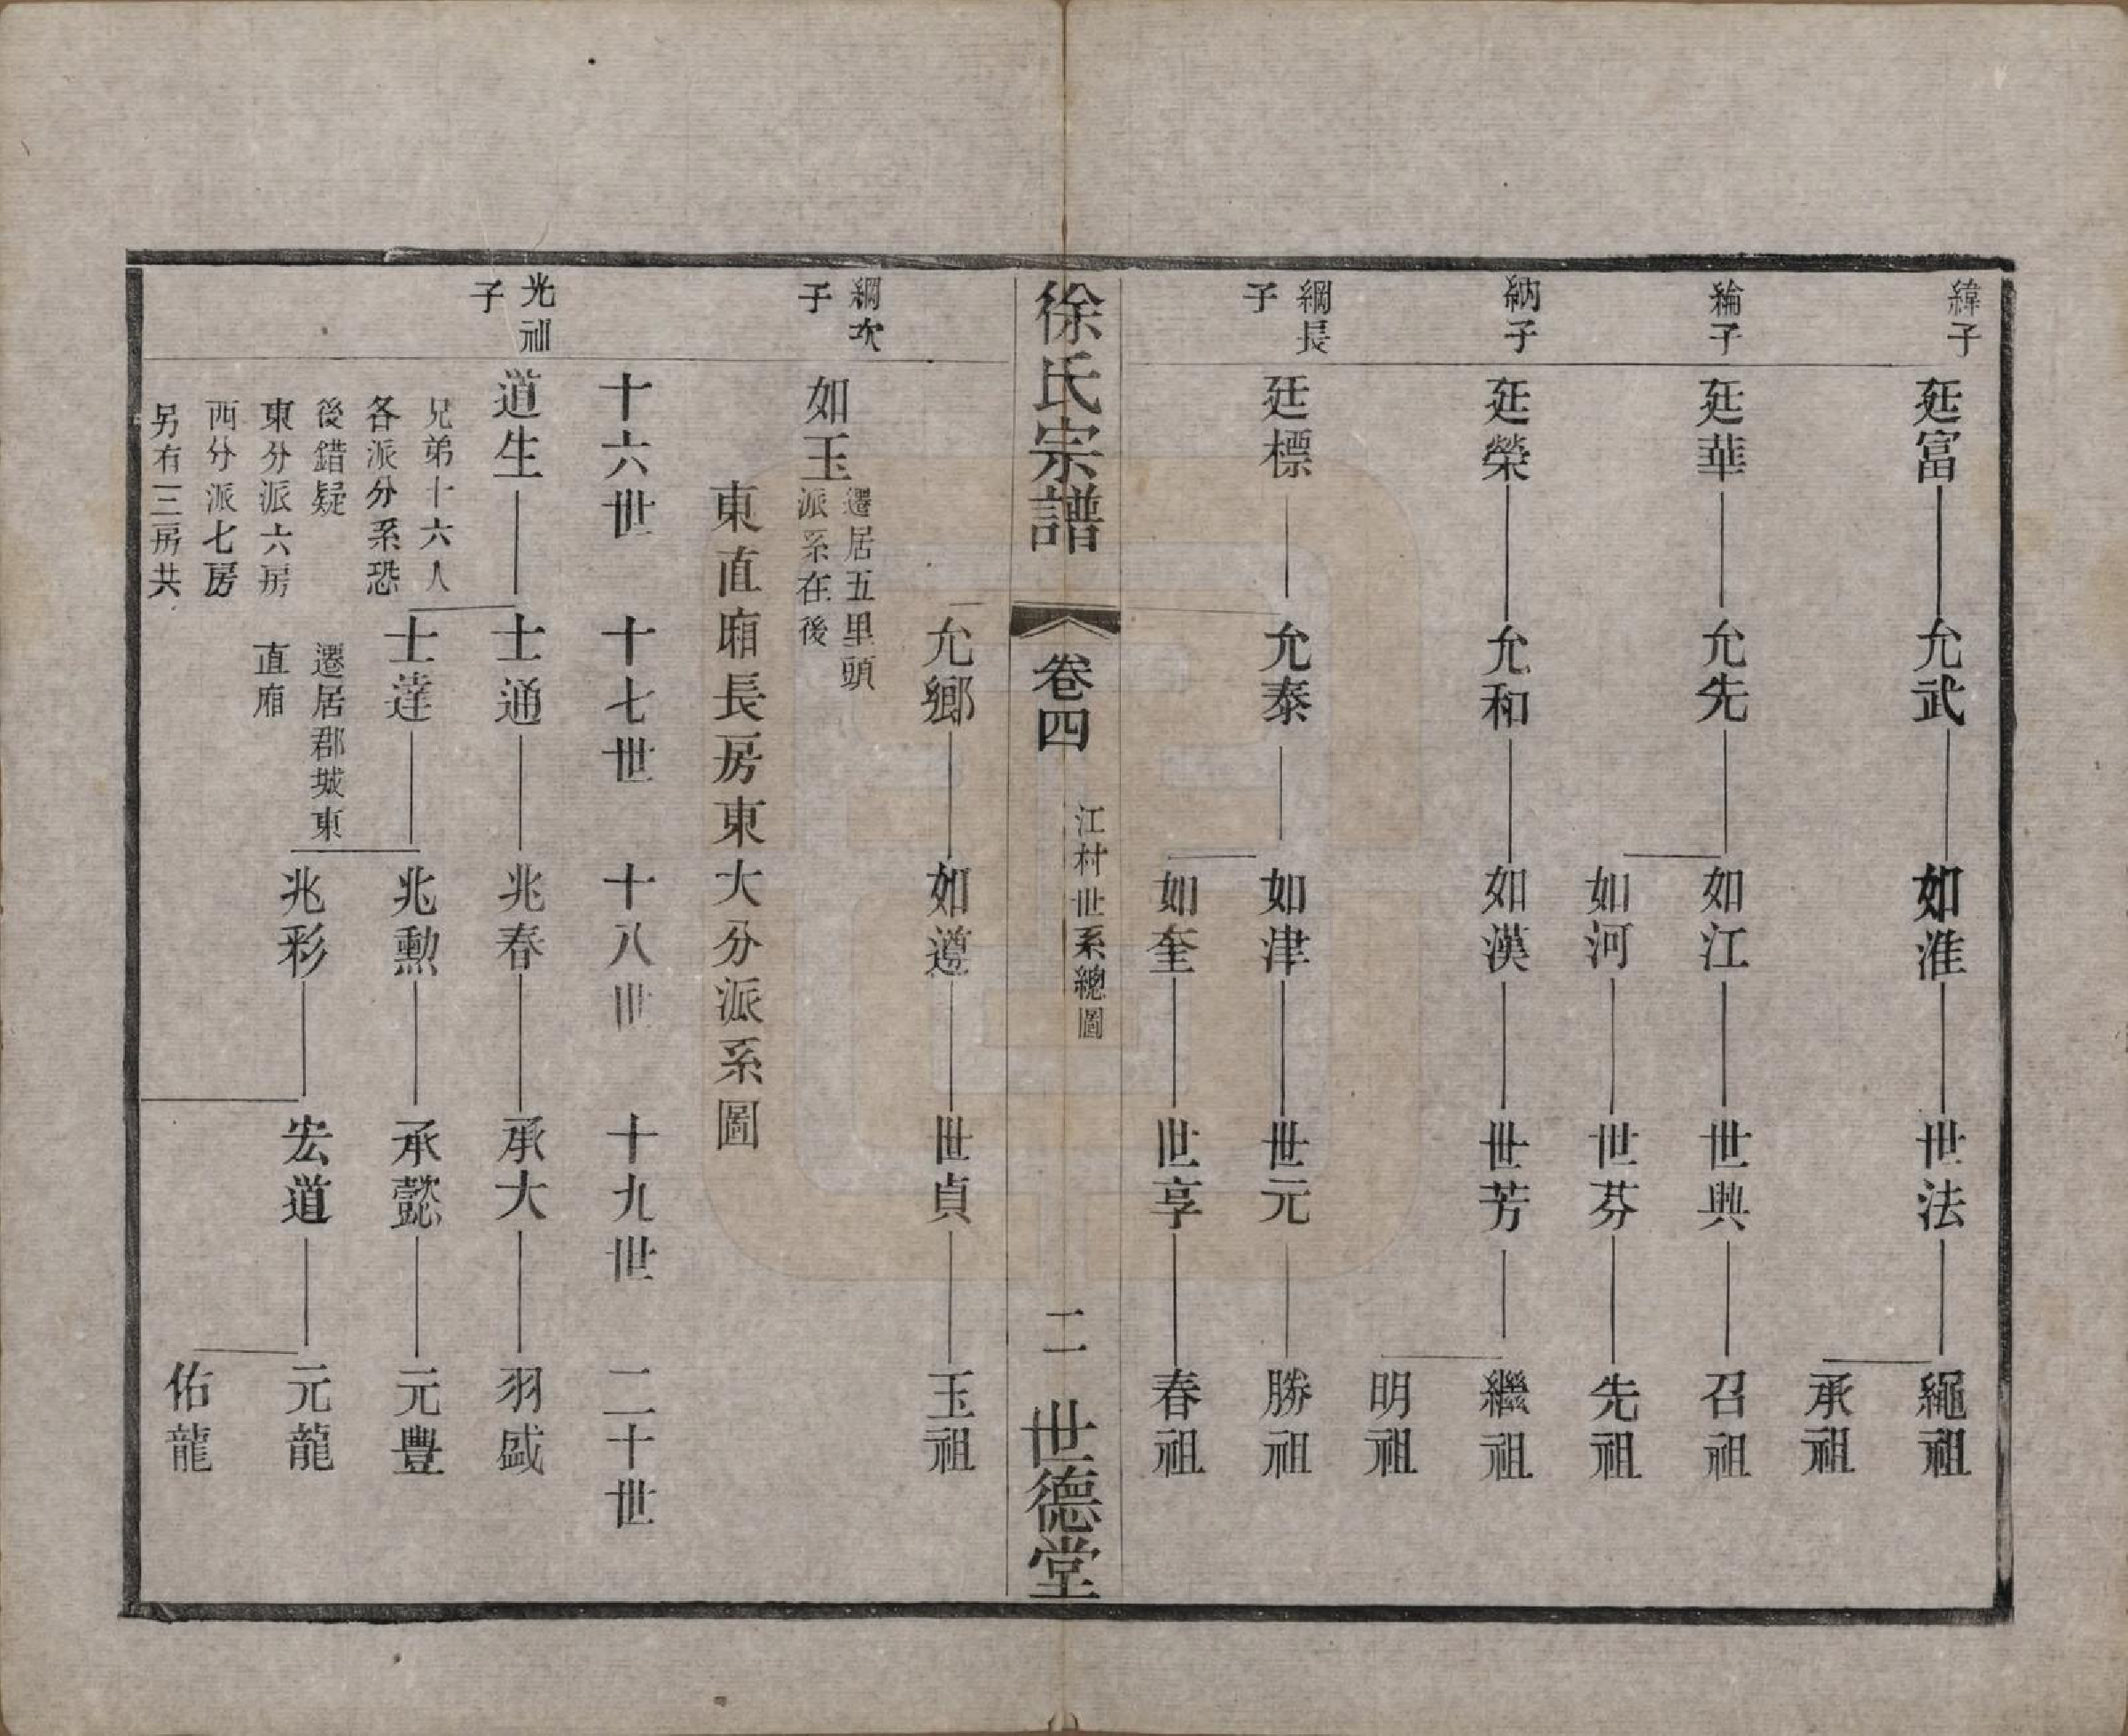 緯子
延富 允武 如淮 世法 繩祖
承祖
綸子
延華 允先 如江 世興 召祖
如河 世芬 先祖
納子
延榮 允和 如漢 世芳 繼祖
明祖
綱長子
廷標 允泰 如津 世元 勝祖
如奎 世享 春祖
徐氏宗譜 卷四 江村世系總圖 二 世德堂
允鄉 如遵 世貞 玉祖
綱次子
如玉 遷居五里頭
派系在後
東直廂長房東大分派系圖
十六世 十七世 十八世 十九世 二十世
光訓子
道生 士通 兆春 承大 羽盛
兄弟十六人
各派分系恐
後錯疑
東分派六房
西分派七房
另有三房共
士達 兆勲 承懿 元豐
遷居郡城東
直廂
兆彩 宏道 元龍
佑龍